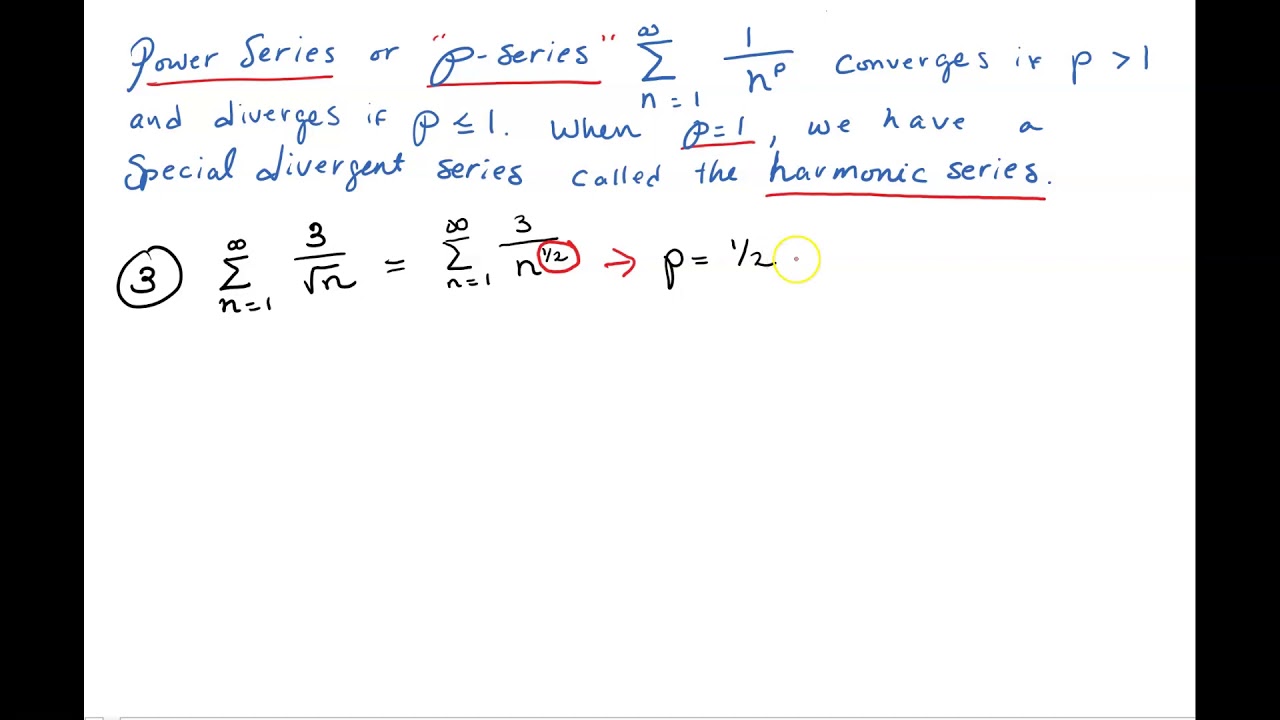 Power Series or "p-series" ∞ Σ n = 1 1/n^p converges if p > 1
and diverges if p ≤ 1. When p = 1, we have a
special divergent series called the harmonic series.
3 ∞ Σ n=1 3/√n = ∞ Σ n=1 3/n^1/2 → p = 1/2